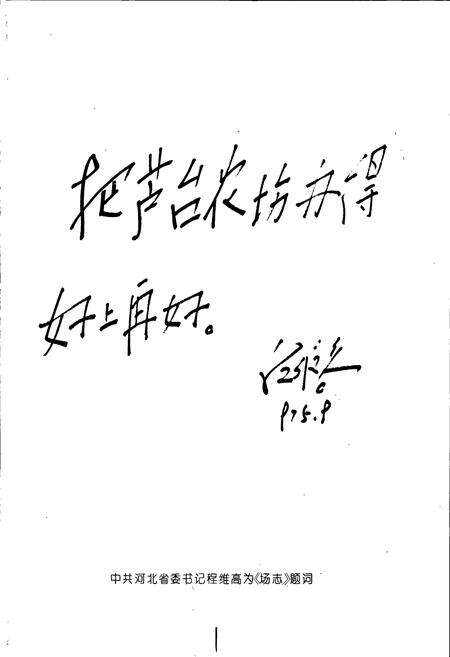 把芦台农场办得
好上再好。
程维高
中共河北省委书记程维高为《场志》题词